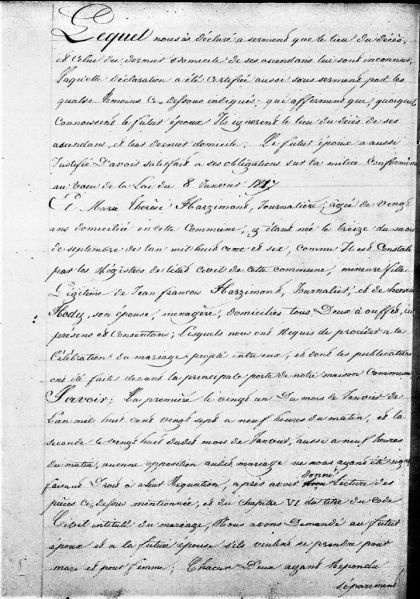 Lequel nous a déclaré a serment que le lieu du décès,
et celui du dernier domicile de ses ascendans lui sont inconnus,
Laquelle déclaration a été certifiée aussi sous serment par les
quatre temoins ci-dessous indiqués; qui afferment que, quoiqu'ils
connoissent le futur époux Ils ignorent le lieu du décès de ses
ascendans, et leur dernier domicile; Le futur époux a aussi
Justifié D'avoir satisfait a ses obligations sur la milice Conformément
au vœu de la Loi du 8 Janvier 1817
Et Marie Thérèse Harzimont, Journalière, agée de vingt
ans domiciliée en cette Commune, y étant née le treize du mois
de septembre de l'an mil huit cent et six, comme Il est Constaté
par les Régistres de l'état civil de cette commune, mineure fille
Légitime de Jean François Harzimont, Journalier, et de
Hody, son épouse, menagère, domiciliés tous Deux à ouffet, ici
présens et Consentans; Lesquels nous ont Requis de procéder a la
Célébration du mariage projeté entre eux, et dont les publications
ont été faites devant la principale porte de notre maison Commune
Savoir: La première le vingt un Du mois de Janvier de
L'an mil huit cent vingt sept à neuf heures du matin, et la
seconde le vingt huit dudit mois de Janvier, aussi a neuf heures
du matin, aucune opposition audit mariage ne nous ayant été signifiée
faisant Droit a leur Requisition, après avoir donné Lecture des
pièces ci-dessus mentionnée, et du Chapitre VI du titre du Code
Civil intitulé du mariage, Nous avons Demandé au futur
époux et a la future épouse s'ils veulent se prendre pour
mari et pour femme; Chacun D'eux ayant Répondu
séparement